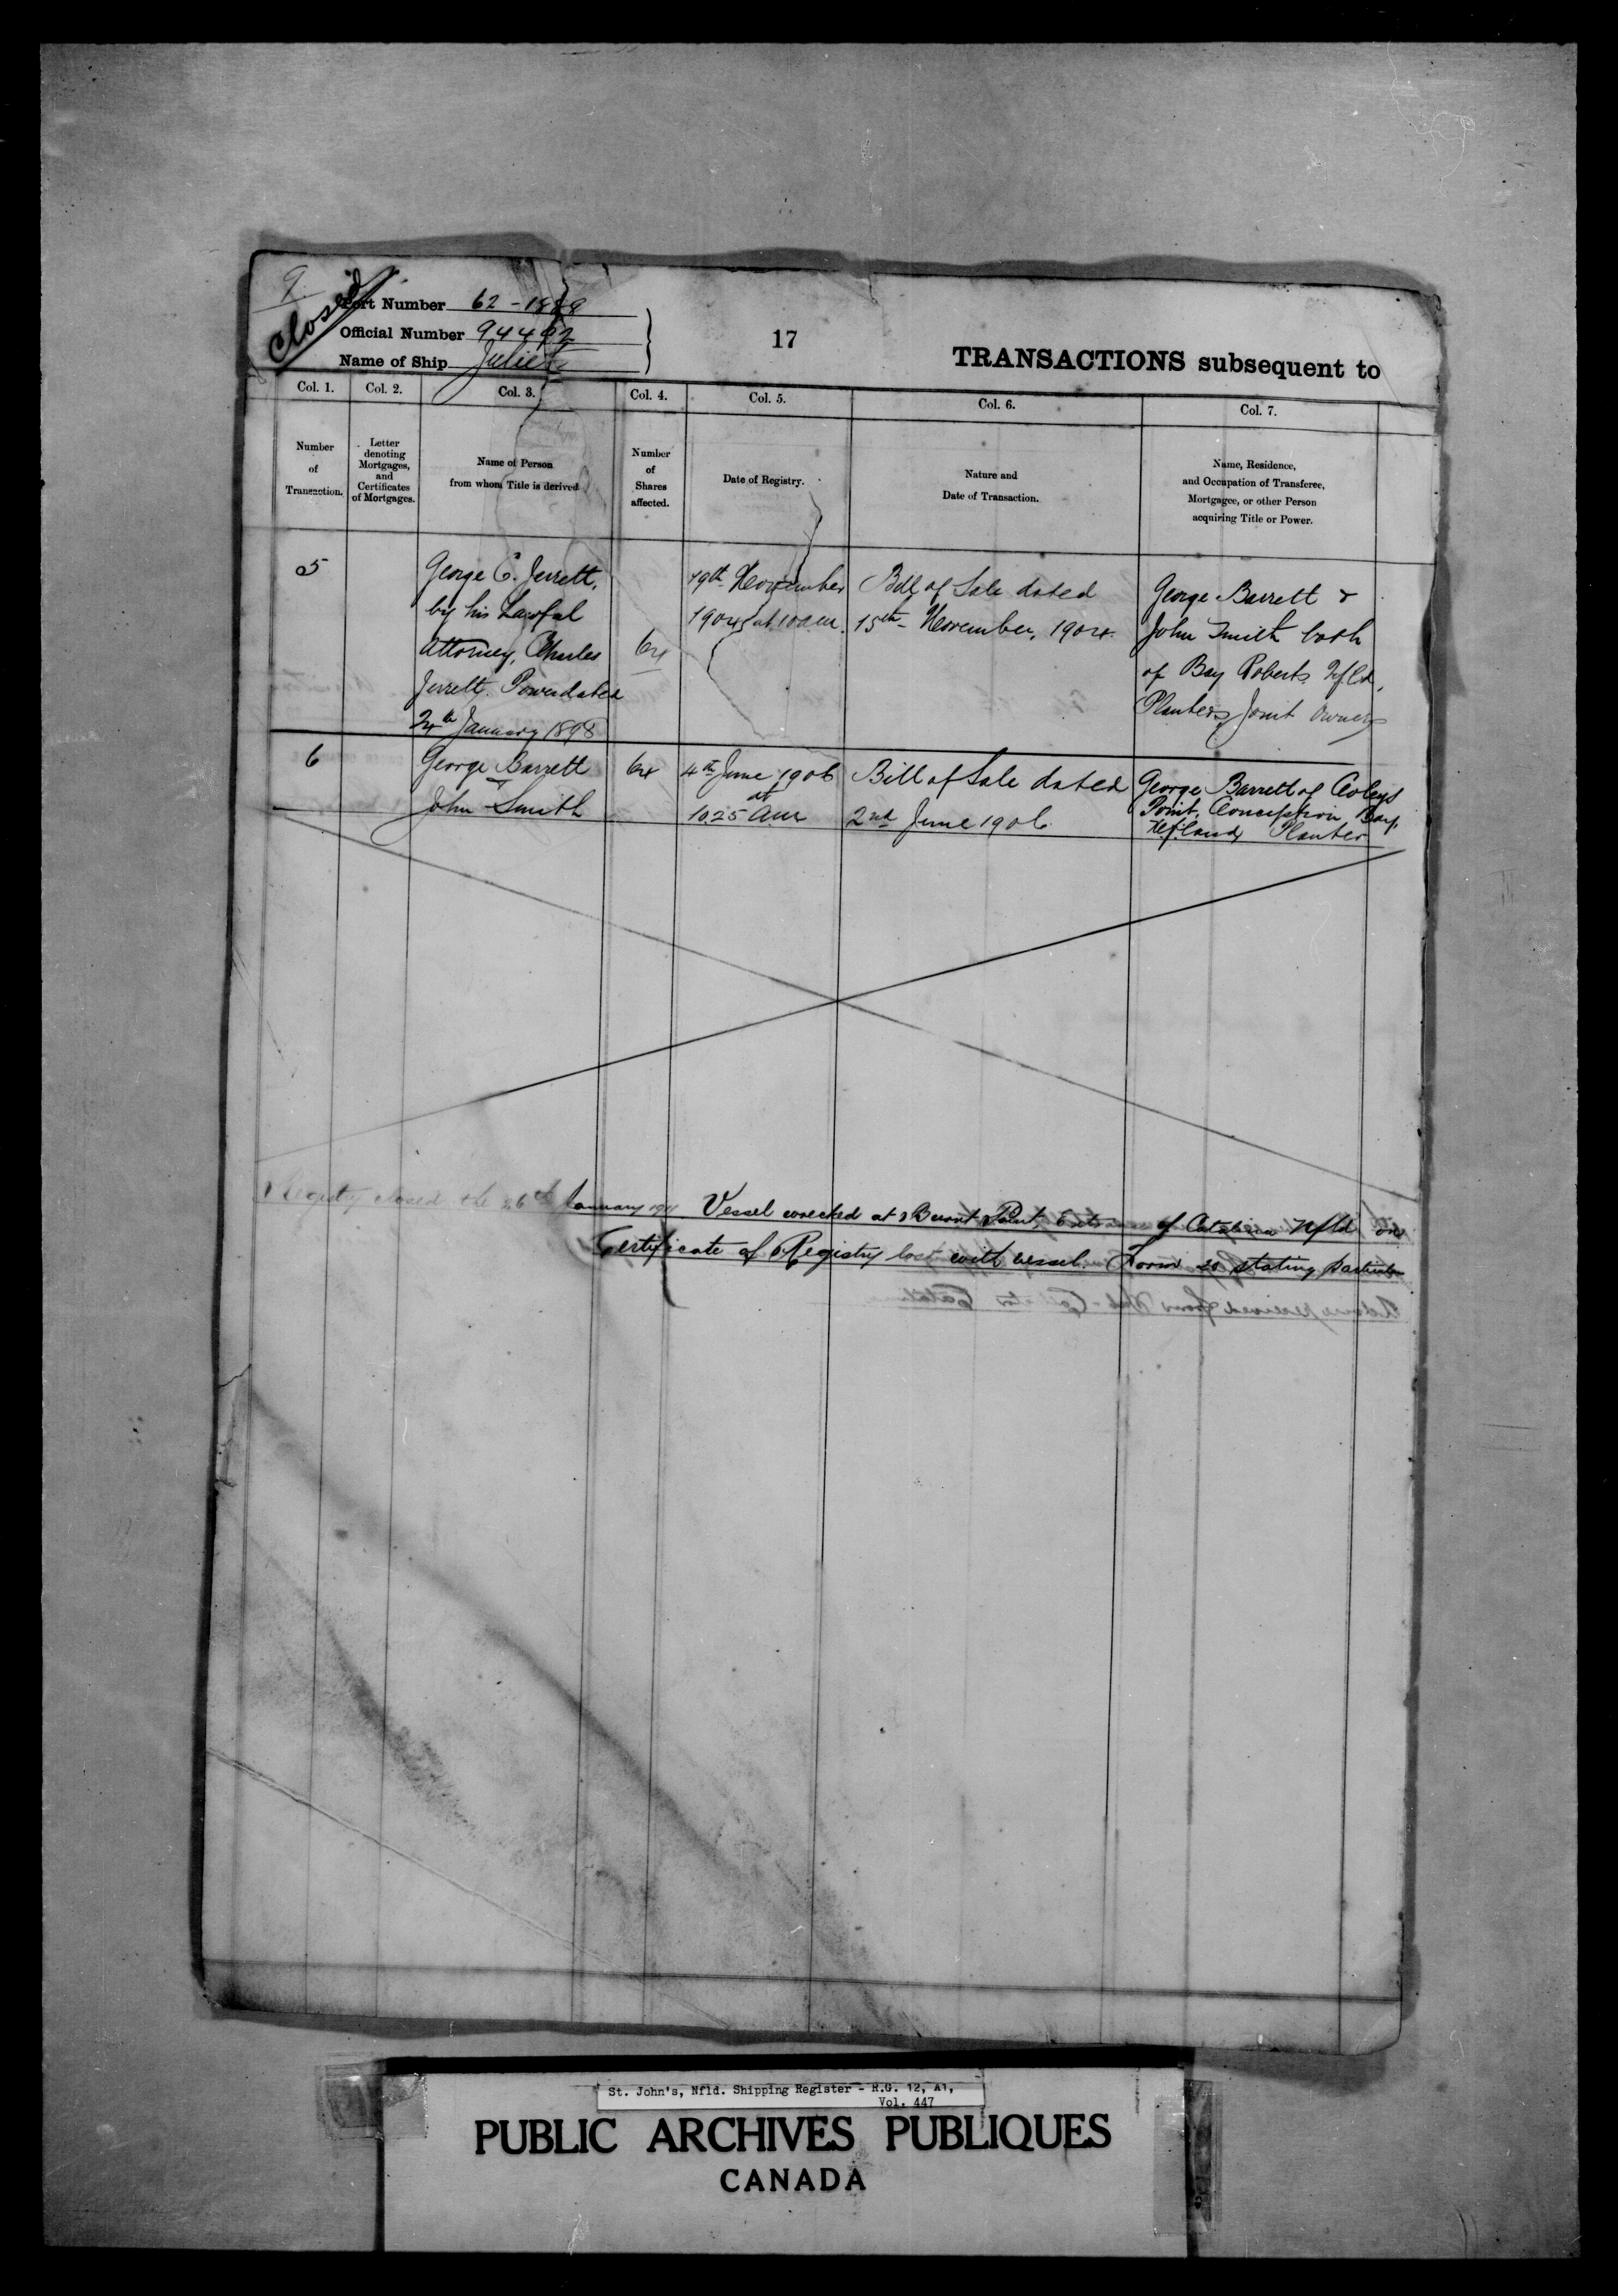 9.
Closed
Port Number 62-1889
Official Number 94492
Name of Ship Juliet
17
TRANSACTIONS subsequent to
Col. 1.
Col. 2.
Col. 3.
Col. 4.
Col. 5.
Col. 6.
Col. 7.
Number
of
Transaction.
Letter
denoting
Mortgages,
and
Certificates
of Mortgages.
Name of Person
from whom Title is derived
Number
of
Shares
affected.
Date of Registry.
Nature and
Date of Transaction.
Name, Residence,
and Occupation of Transferee,
Mortgagee, or other Person
acquiring Title or Power.
5
George C. Jerrett,
by his Lawful
Attorney, Charles
Jerrett. Power dated
24th January 1898
64
19th November
1904 at 10 am.
Bill of Sale dated
15th November, 1904.
George Barrett &
John Smith both
of Bay Roberts Nfld,
Planters Joint Owners
6
George Barrett
John Smith
64
4th June 1906
at
10.25 am
Bill of Sale dated
2nd June 1906
George Barrett of Coleys
Point, Conception Bay,
Nfland, Planter
Registry closed the 26th January Vessel wrecked at Burnt Point of Catalina Nfld on
Certificate of Registry lost with vessel. Form 20 stating particulars
St. John's, Nfld. Shipping Register - R.G. 12, A1,
Vol. 447
PUBLIC ARCHIVES PUBLIQUES
CANADA